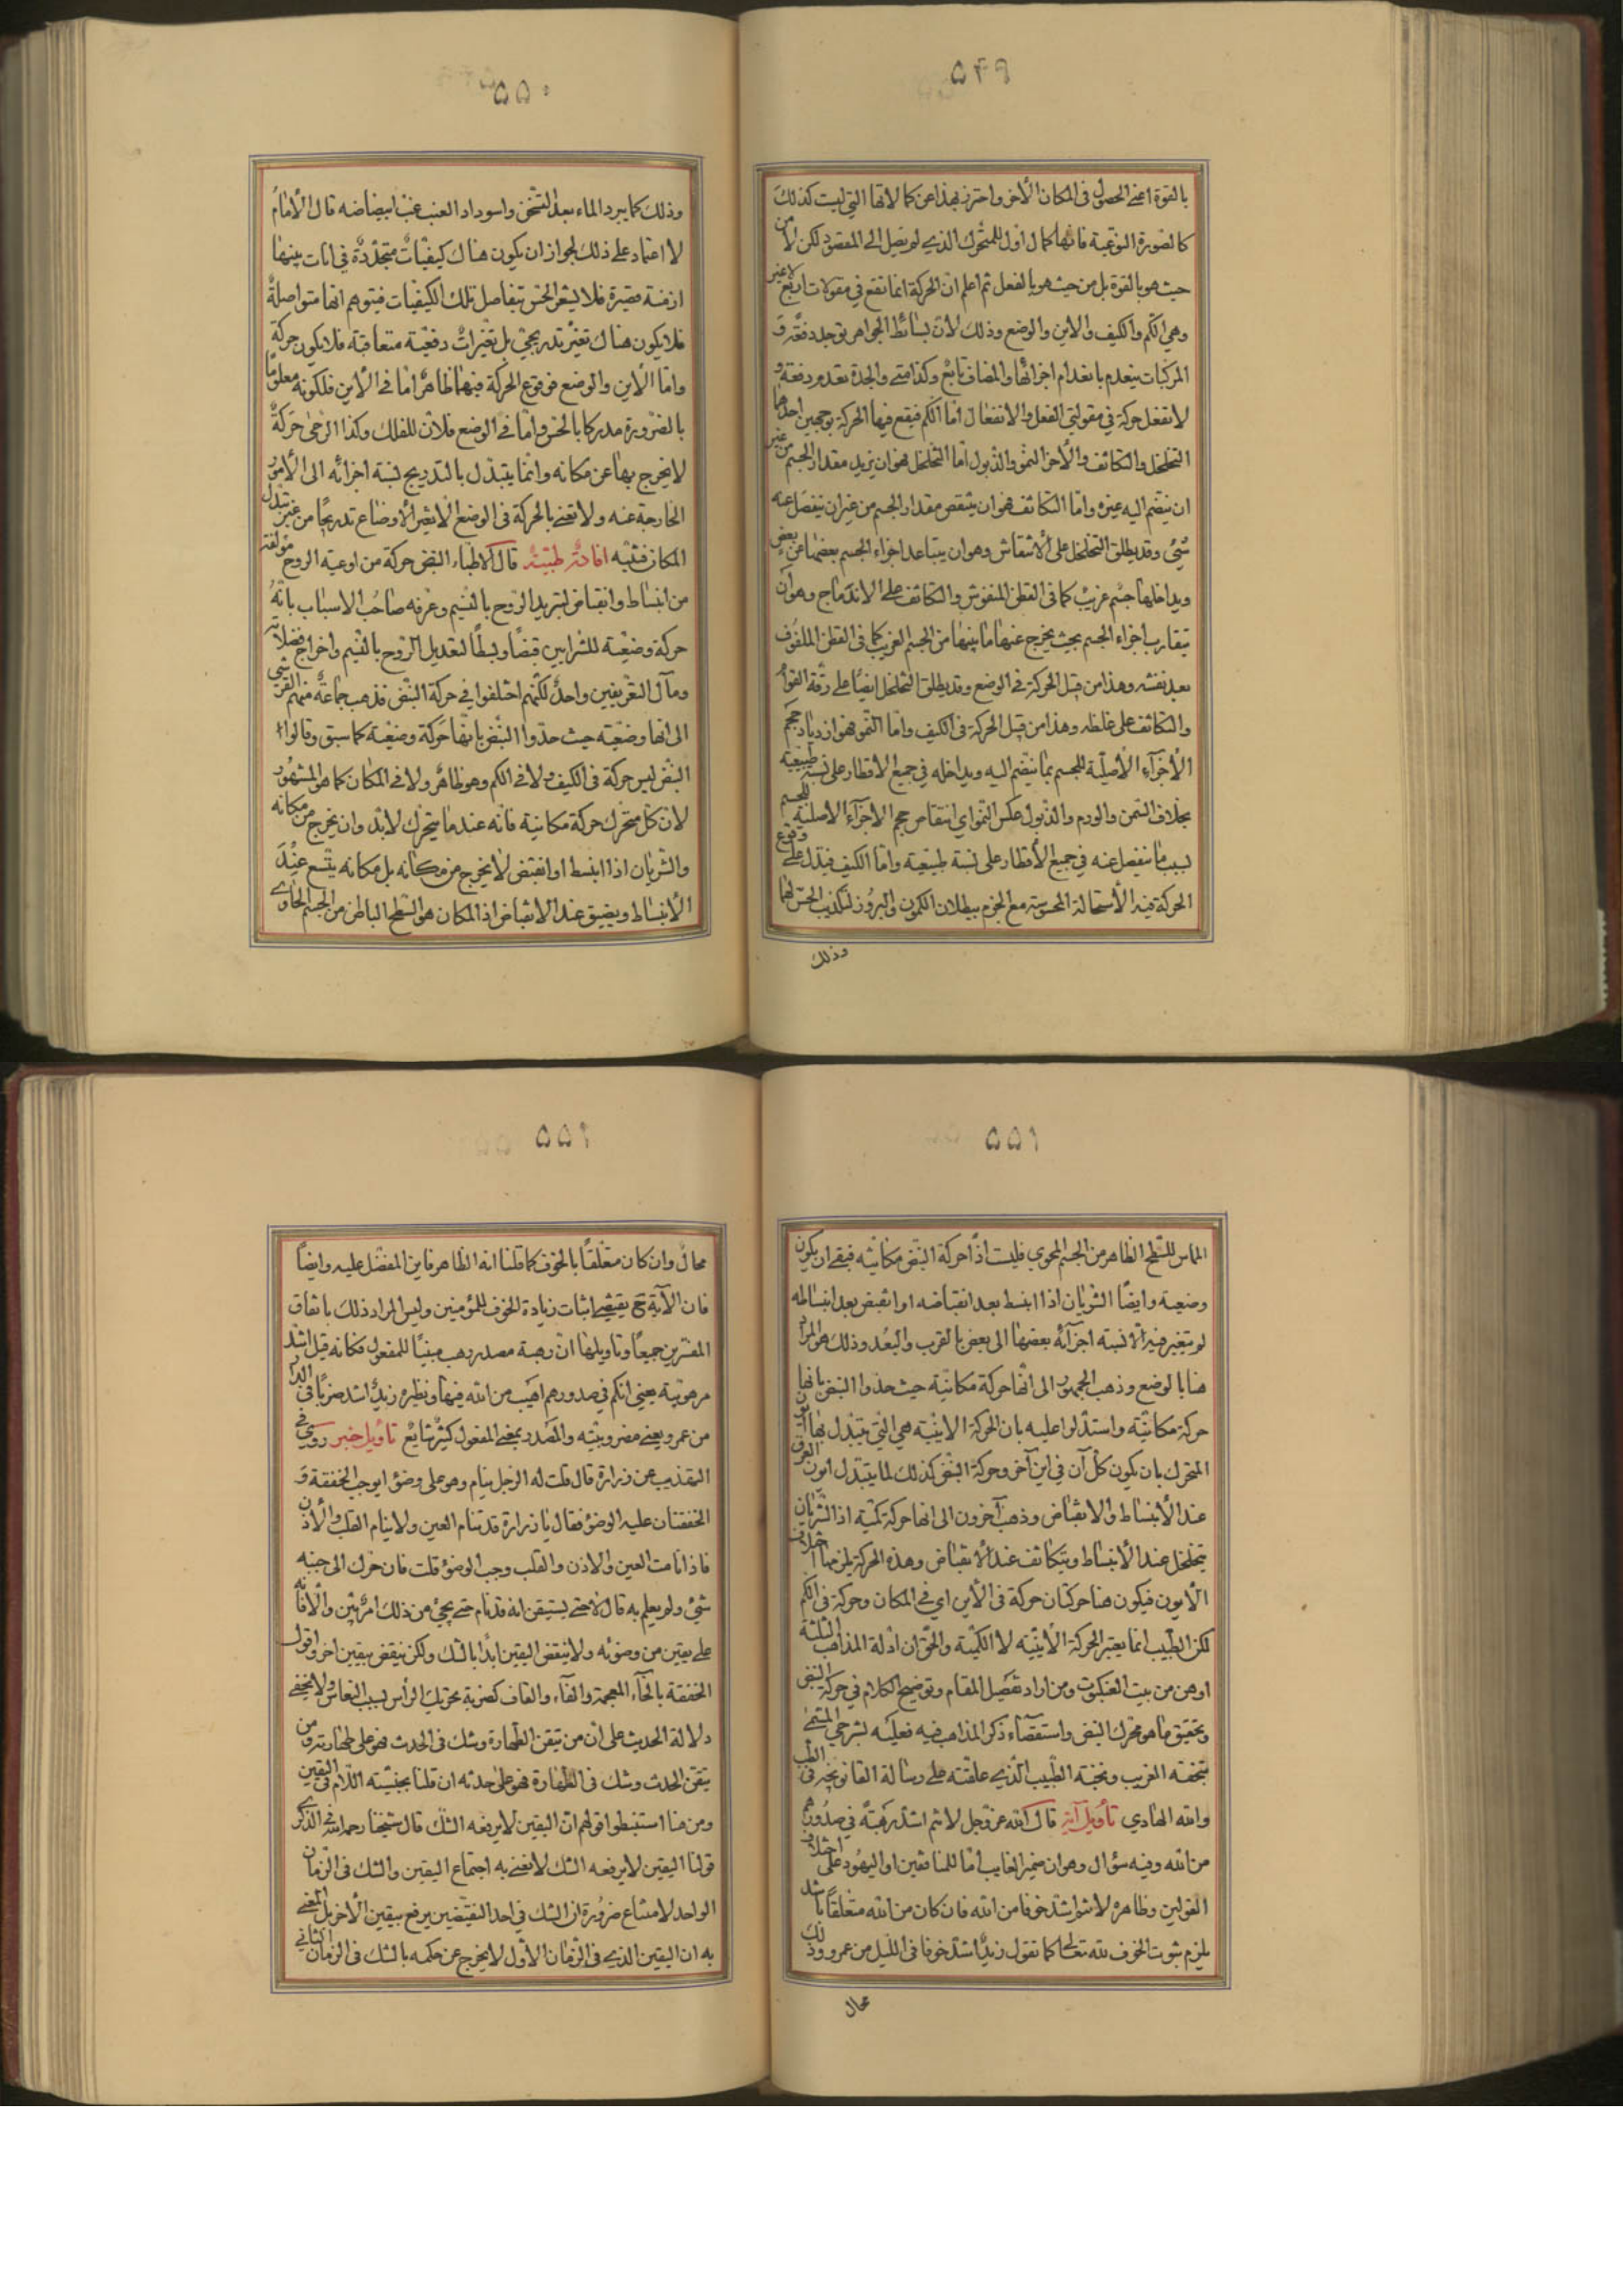 ٥٤٩
بالقوة اعني الحصول في المكان الآخر واحترز بهذا عن كمالاتها التي ليست كذلك
كالصورة النوعية فانها كمال اول للمتحرك الذي لم يصل الى المقصود لكن لا من
حيث هو بالقوة بل من حيث هو بالفعل ثم اعلم ان الحركة انما تقع في مقولات اربع لا غير
وهي الكم والكيف والاين والوضع وذلك لان بسائط الجواهر توجد دفعة و
المركبات ينعدم بانعدام اجزائها والمضاف تابع وكذا متى والجدة تعدم دفعة و
لا تعقل حركة في مقولتي الفعل والانفعال اما الكم فيقع فيها الحركة بوجهين احدهما
التخلخل والتكاثف والآخر النمو والذبول اما التخلخل فهو ان يزيد مقدار الجسم من غير
ان ينضم اليه غيره واما التكاثف فهو ان ينتقص مقدار الجسم من غير ان ينفصل عنه
شئ وقد يطلق التخلخل على الانتفاش وهو ان يتباعد اجزاء الجسم بعضها عن بعض
ويداخلها جسم غريب كما في القطن المنفوش والتكاثف على الاندماج وهو ان
يتقارب اجزاء الجسم بحيث يخرج عنها ما بينها من الجسم الغريب كما في القطن الملفوف
بعد نفشه وهذا من قبل الحركة في الوضع وقد يطلق التخلخل ايضا على رقة القوام
والتكاثف على غلظه وهذا من قبل الحركة في الكيف واما النمو فهو ازدياد حجم
الاجزاء الاصلية للجسم بما ينضم اليه ويداخله في جميع الاقطار على نسبة طبيعية
بخلاف السمن والورم والذبول عكس النمو اي انتقاص حجم الاجزاء الاصلية للجسم
بسبب ما ينفصل عنه في جميع الاقطار على نسبة طبيعية واما الكيف فيدل على وقوع
الحركة فيه الاستحالة المحسوسة مع الجزم ببطلان الكمون والبروز لتكذيب الحس لهما
وذلك
٥٥٠
وذلك كما يبرد الماء بعد التسخن واسوداد العنب غب ابيضاضه قال الامام
لا اعتماد على ذلك لجواز ان يكون هناك كيفيات متجددة في انات بينها
ازمنة قصيرة فلا يشعر الحس بتفاصل تلك الكيفيات فيتوهم انها متواصلة
فلا يكون هناك تغير تدريجي بل تغيرات دفعية متعاقبة فلا يكون حركة
واما الاين والوضع فوقوع الحركة فيهما ظاهر اما في الاين فلكونه معلوما
بالضرورة مدركا بالحس واما في الوضع فلان للفلك وكذا الرحى حركة
لا يخرج بها عن مكانه وانما يتبدل بالتدريج نسبة اجزائه الى الامور
الخارجة عنه ولا نعني بالحركة في الوضع الا تغير الاوضاع تدريجا من غير تبدل
المكان فتنبه افادة طبية قال الاطباء النبض حركة من اوعية الروح مؤلفة
من انبساط وانقباض لتبريد الروح بالنسيم وعرفه صاحب الاسباب بانه
حركة وضعية للشرايين قبضا وبسطا لتعديل الروح بالنسيم واخراج فضلاته
ومآل التعريفين واحد لكنهم اختلفوا في حركة النبض فذهب جماعة منهم القرشي
الى انها وضعية حيث حدوا النبض بانها حركة وضعية كما سبق وقالوا
النبض ليس حركة في الكيف ولا في الكم وهو ظاهر ولا في المكان كما هو المشهور
لان كل متحرك حركة مكانية فانه عندما يتحرك لا بد وان يخرج من مكانه
والشريان اذا انبسط او انقبض لا يخرج من مكانه بل مكانه يتسع عند
الانبساط ويضيق عند الانقباض اذ المكان هو السطح الباطن من الجسم الحاوي
٥٥١
المماس للسطح الظاهر من الجسم المحوي فليست اذا حركة النبض مكانية فبقي ان يكون
وضعية وايضا الشريان اذا انبسط بعد انقباضه او انقبض بعد انبساطه
لم يتغير فيه الا نسبة اجزائه بعضها الى بعض بالقرب والبعد وذلك هو المراد
هنا بالوضع وذهب الجمهور الى انها حركة مكانية حيث حدوا النبض بانها
حركة مكانية واستدلوا عليه بان الحركة الاينية هي التي يتبدل بها اين
المتحرك بان يكون كل آن في اين آخر وحركة النبض كذلك لما يتبدل ايون العرق
عند الانبساط والانقباض وذهب آخرون الى انها حركة كمية اذ الشريان
يتخلخل عند الانبساط ويتكاثف عند الانقباض وهذه الحركة يلزمها اختلاف
الايون فيكون هنا حركتان حركة في الاين اي في المكان وحركة في الكم
لكن الطبيب انما يعتبر الحركة الاينية لا الكمية والحق ان ادلة المذاهب الثلثة
اوهن من بيت العنكبوت ومن اراد تفصيل المقام وتوضيح الكلام في حركة النبض
وتحقيق ما هو محرك النبض واستقصاء ذكر المذاهب فيه فعليه بشرحي المسمى
بتحفة الغريب ونخبة الطبيب الذي علقته على رسالة القانونچه في الطب
والله الهادي تأويل آية قال الله عز وجل لانتم اشد رهبة في صدورهم
من الله وفيه سؤال وهو ان ضمير الغايب اما للمنافقين او اليهود على اختلاف
القولين وظاهره لانتم اشد خوفا من الله فان كان من الله متعلقا باشد
يلزم ثبوت الخوف لله تعالى كما تقول زيد اشد خوفا في الليل من عمرو وذلك
محال
٥٥١
محال وان كان متعلقا بالخوف كما قلنا انه الظاهر فاين المفضل عليه وايضا
فان الآية ح يقتضي اثبات زيادة الخوف للمؤمنين وليس المراد ذلك باتفاق
المفسرين جميعا وتأويلها ان رهبة مصدر رهب مبنيا للمفعول فكانه قيل اشد
مرهوبية يعني انكم في صدورهم اهيب من الله فيها ونظيره زيد اشد ضربا في الدار
من عمرو يعني مضروبيته والمصدر بمعنى المفعول كثير شايع تأويل خبر روي في
التهذيب عن زرارة قال قلت له الرجل ينام وهو على وضوء ايوجب الخفقة و
الخفقتان عليه الوضوء فقال يا زرارة قد تنام العين ولا ينام القلب والاذن
فاذا نامت العين والاذن والقلب وجب الوضوء قلت فان حرك الى جنبه
شئ ولم يعلم به قال لا حتى يستيقن انه قد نام حتى يجئ من ذلك امر بين والا فانه
على يقين من وضوئه ولا ينقض اليقين ابدا بالشك ولكن ينقض بيقين اخر واقول
الخفقة بالخاء المعجمة والفاء والقاف كضربة تحريك الرأس بسبب النعاس ولا يخفى
دلالة الحديث على ان من تيقن الطهارة وشك في الحدث فهو على طهارته ومن
تيقن الحدث وشك في الطهارة فهو على حدثه ان قلنا بجنسية اللام في اليقين
ومن هنا استنبطوا قولهم ان اليقين لا يرفعه الشك قال شيخنا رحمه الله في الذكرى
قولنا اليقين لا يرفعه الشك لا نعني به اجتماع اليقين والشك في الزمان
الواحد لامتناع ضرورة ان الشك في احد النقيضين يرفع يقين الآخر بل المعني
به ان اليقين الذي في الزمان الاول لا يخرج عن حكمه بالشك في الزمان الثاني